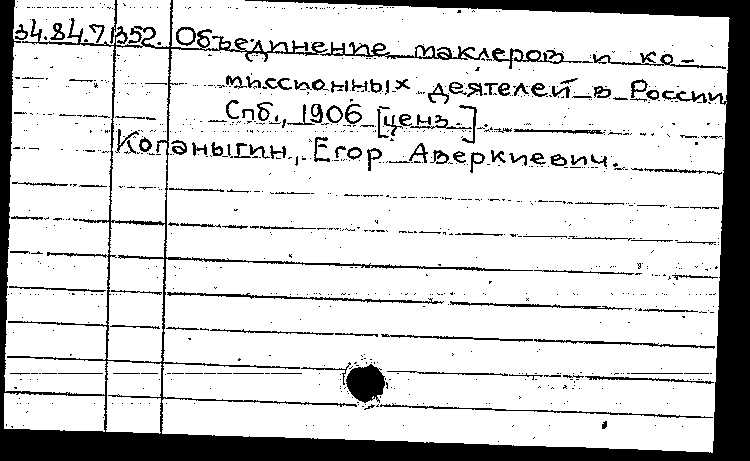 34.84.7.352. Объединение маклеров и ко-
миссионных деятелей в России
Спб., 1906 [ценз.].
Коганыгин, Егор Аверкиевич.